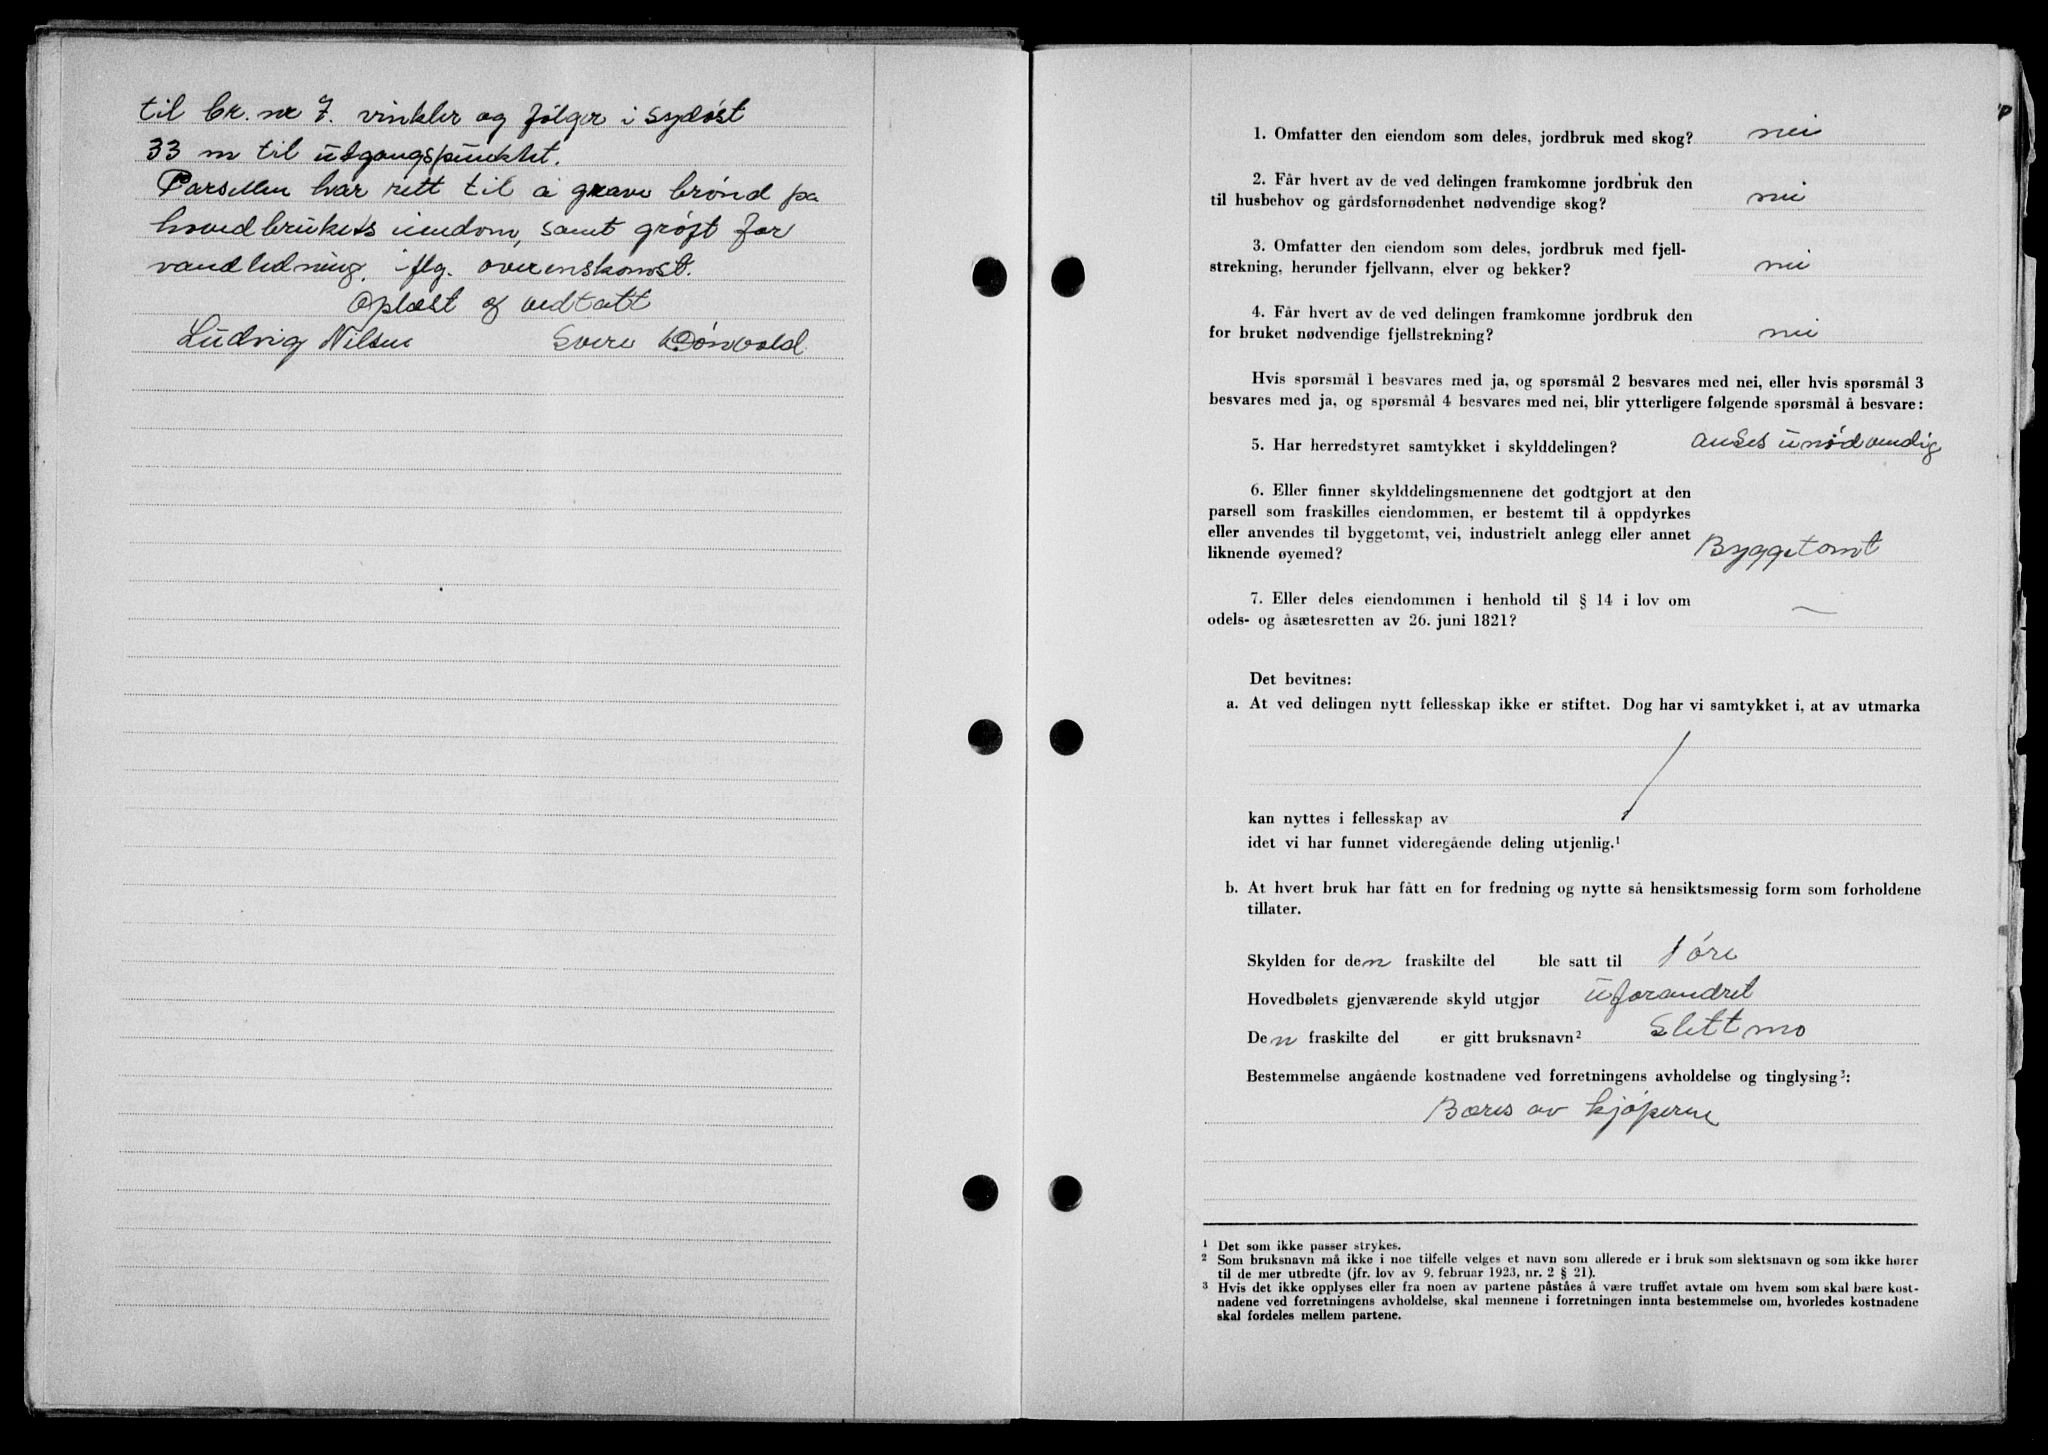 til br. nr 7. vinkler og følger i sydøst
33 m til utgangspunktet.
Parsellen har rett til å grave brønd på
hovedbrukets eiendom, samt grøft for
vandledning, iflg. overenskomst.
Oplæst og vedtatt
Ludvig Nilsen Sverre Dønvold
1. Omfatter den eiendom som deles, jordbruk med skog? nei
2. Får hvert av de ved delingen framkomne jordbruk den
til husbehov og gårdsfornødenhet nødvendige skog? nei
3. Omfatter den eiendom som deles, jordbruk med fjell-
strekning, herunder fjellvann, elver og bekker? nei
4. Får hvert av de ved delingen framkomne jordbruk den
for bruket nødvendige fjellstrekning? nei
Hvis spørsmål 1 besvares med ja, og spørsmål 2 besvares med nei, eller hvis spørsmål 3
besvares med ja, og spørsmål 4 besvares med nei, blir ytterligere følgende spørsmål å besvare:
5. Har herredstyret samtykket i skylddelingen? anses unødvendig
6. Eller finner skylddelingsmennene det godtgjort at den
parsell som fraskilles eiendommen, er bestemt til å oppdyrkes
eller anvendes til byggetomt, vei, industrielt anlegg eller annet
liknende øyemed? Byggetomt
7. Eller deles eiendommen i henhold til § 14 i lov om
odels- og åsætesretten av 26. juni 1821? —
Det bevitnes:
a. At ved delingen nytt fellesskap ikke er stiftet. Dog har vi samtykket i, at av utmarka
kan nyttes i fellesskap av
idet vi har funnet videregående deling utjenlig.¹
b. At hvert bruk har fått en for fredning og nytte så hensiktsmessig form som forholdene
tillater.
Skylden for den fraskilte del ble satt til 1 øre
Hovedbølets gjenværende skyld utgjør uforandret
Den fraskilte del er gitt bruksnavn² Slettmo
Bestemmelse angående kostnadene ved forretningens avholdelse og tinglysing³:
Bæres av kjøperne
¹ Det som ikke passer strykes.
² Som bruksnavn må ikke i noe tilfelle velges et navn som allerede er i bruk som slektsnavn og som ikke hører
til de mer utbredte (jfr. lov av 9. februar 1923, nr. 2 § 21).
³ Hvis det ikke opplyses eller fra noen av partene påståes å være truffet avtale om hvem som skal bære kost-
nadene ved forretningens avholdelse, skal mennene i forretningen innta bestemmelse om, hvorledes kostnadene
skal fordeles mellem partene.